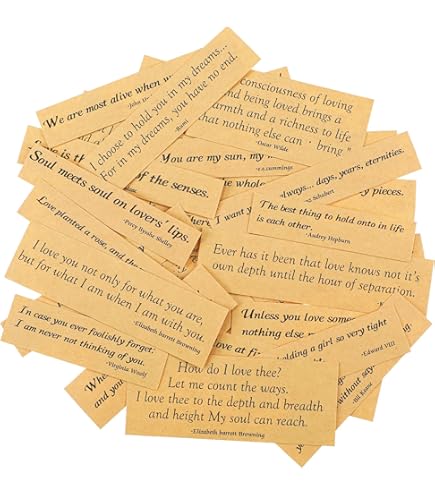 We are most alive when
I choose to hold you in my dreams...
For in my dreams, you have no end.
-Rumi
consciousness of loving
and being loved brings a
warmth and a richness to life
that nothing else can · bring "
-Oscar Wilde
You are my sun, my
-e.e.cummings
of the senses.
Always... days, years, eternities.
Schubert
pieces.
I want
The best thing to hold onto in life
is each other.
-Audrey Hepburn
Soul meets soul on lovers' lips.
-Percy Bysshe Shelley
Love planted a rose, and the
I love you not only for what you are,
but for what I am when I am with you.
-Elizabeth Barrett Browning
Ever has it been that love knows not it's
own depth until the hour of separation.
Unless you love someone
nothing else
-Edward VIII
holding a girl so very tight
In case you ever foolishly forget;
I am never not thinking of you.
-Virginia Woolf
without
How do I love thee?
Let me count the ways.
I love thee to the depth and breadth
and height My soul can reach.
-Elizabeth barrett Browning